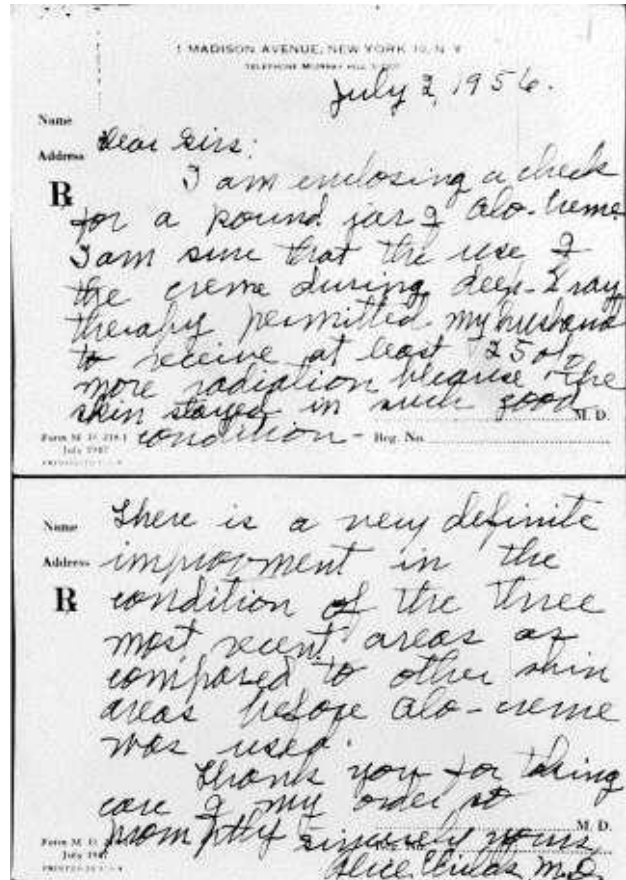 1 MADISON AVENUE, NEW YORK 10, N. Y.
TELEPHONE MURRAY HILL
July 2, 1956.
Name
Dear Sirs:
Address
I am enclosing a check
R
for a pound jar of Alo-Creme
I am sure that the use of
the creme during deep-X ray
therapy permitted my husband
to receive at least 25%
more radiation because the
skin stayed in such good
M. D.
condition-
Form M. D. 218-1
Reg. No.
July 1947
Name
There is a very definite
Address
improvment in the
R
condition of the three
most recent areas as
compared to other skin
areas before Alo-creme
was used.
Thank you for taking
care of my order so
M. D.
promptly
Sincerely yours
Form M. D.
July 1947
Alice M.D.